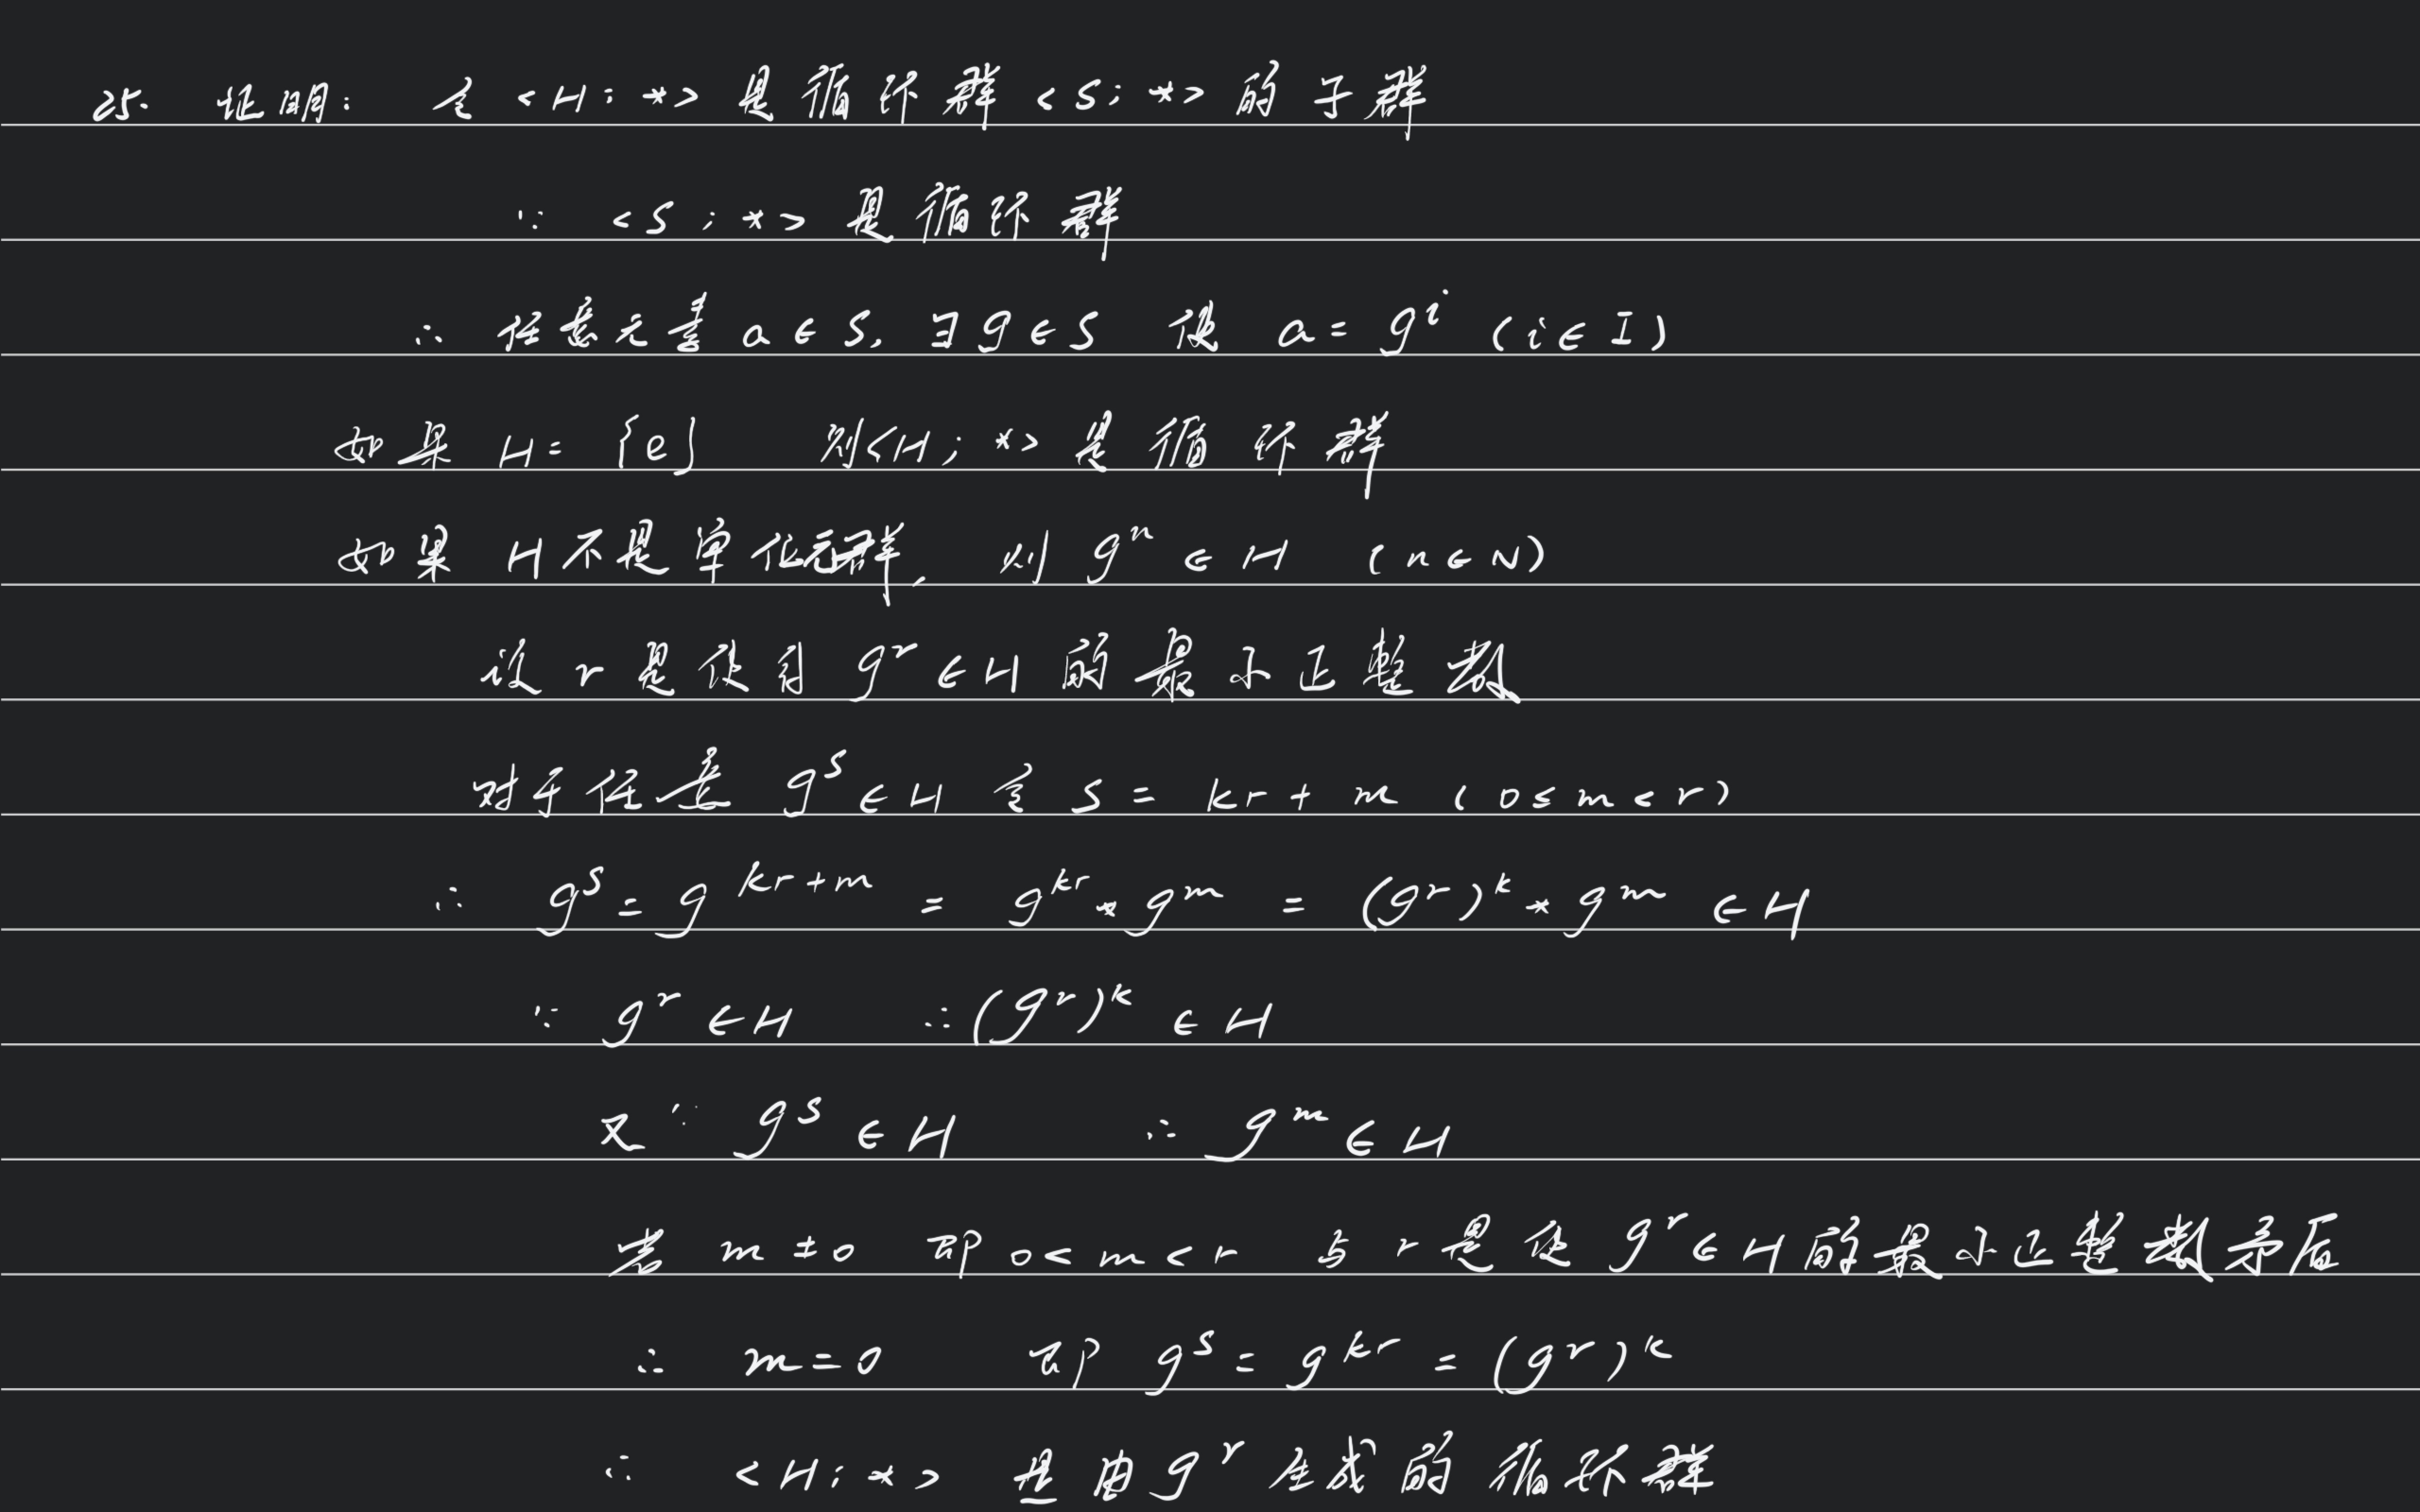 25. 证明: 令 <H; *> 是循环群 <S; *> 的子群
∵ <S; *> 是循环群
∴ 任意元素 a∈S, ∃g∈S 使 a=gⁱ (i∈I)
如果 H={e} 则<H; *> 是循环群
如果 H不是单位元群, 则 gⁿ∈H (n∈N)
设 r 是使得 gʳ∈H 的最小正整数
对于任意 gˢ∈H 令 s=kr+m (0≤m<r)
∴ gˢ=g^{kr+m} = g^{kr}*g^m = (gʳ)ᵏ*g^m ∈H
∵ gʳ∈H ∴(gʳ)ᵏ∈H
又∵ gˢ∈H ∴ g^m∈H
若 m≠0 即 0<m<r 与 r是使 gʳ∈H的最小正整数矛盾
∴ m=0 即 gˢ=g^{kr}=(gʳ)ᵏ
∴ <H; *> 是由gʳ生成的循环群